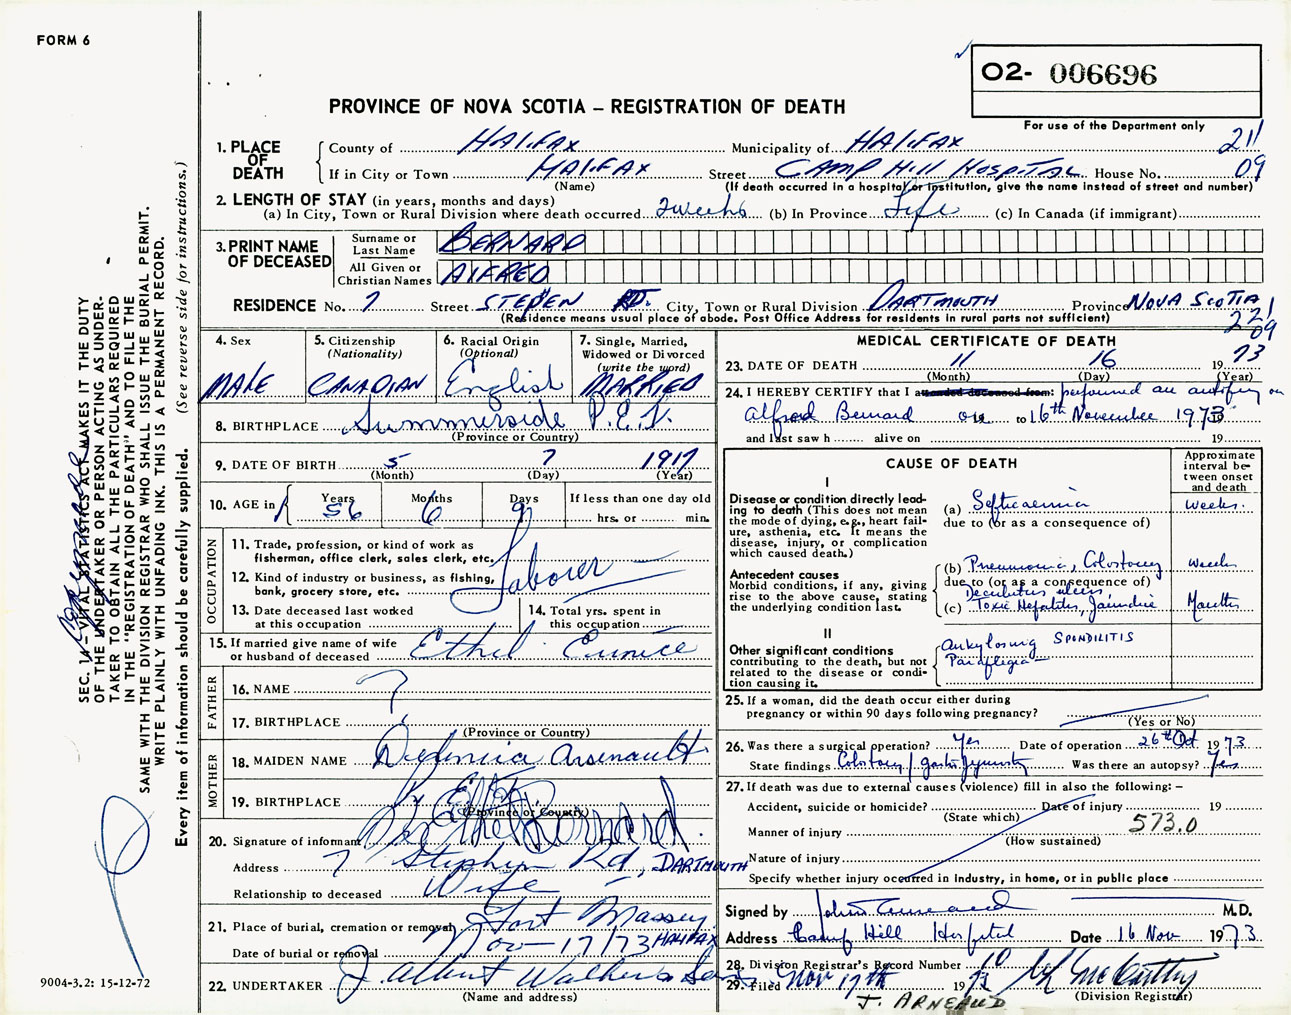 FORM 6
O2- 006696
PROVINCE OF NOVA SCOTIA – REGISTRATION OF DEATH
For use of the Department only
1. PLACE OF DEATH
County of HALIFAX Municipality of HALIFAX 211
If in City or Town HALIFAX Street CAMP HILL HOSPITAL House No. 09
(Name) (If death occurred in a hospital or institution, give the name instead of street and number)
2. LENGTH OF STAY (in years, months and days)
(a) In City, Town or Rural Division where death occurred 2 weeks (b) In Province Life (c) In Canada (if immigrant)
3. PRINT NAME OF DECEASED
Surname or Last Name BERNARD
All Given or Christian Names AlFRED
RESIDENCE No. 7 Street STEPEN RD. City, Town or Rural Division DARTMOUTH Province NOVA SCOTIA
(Residence means usual place of abode. Post Office Address for residents in rural parts not sufficient) 221
09
4. Sex
MALE
5. Citizenship
(Nationality)
CANADIAN
6. Racial Origin
(Optional)
English
7. Single, Married,
Widowed or Divorced
(write the word)
MARRIED
8. BIRTHPLACE Summerside P.E.I.
(Province or Country)
9. DATE OF BIRTH 5 7 1917
(Month) (Day) (Year)
10. AGE in
Years 56
Months 6
Days 9
If less than one day old
hrs. or min.
OCCUPATION
11. Trade, profession, or kind of work as
fisherman, office clerk, sales clerk, etc.
Laborer
12. Kind of industry or business, as fishing,
bank, grocery store, etc.
13. Date deceased last worked
at this occupation
14. Total yrs. spent in
this occupation
15. If married give name of wife
or husband of deceased Ethel Eunice
FATHER
16. NAME ?
17. BIRTHPLACE
(Province or Country)
MOTHER
18. MAIDEN NAME Arsenault
19. BIRTHPLACE
(Province or Country)
20. Signature of informant Ethel Bernard.
Address 7 Stephen Rd, DARTMOUTH
Relationship to deceased Wife
21. Place of burial, cremation or removal Fort Massey
Date of burial or removal Nov – 17/73 HALIFAX
22. UNDERTAKER J. Albert Walker & Sons
(Name and address)
MEDICAL CERTIFICATE OF DEATH
23. DATE OF DEATH 11 16 1973
(Month) (Day) (Year)
24. I HEREBY CERTIFY that I attended deceased from: performed an autopsy on
Alfred Bernard on to 16th November 1973
and last saw h alive on 19
CAUSE OF DEATH
Approximate
interval be-
tween onset
and death
I
Disease or condition directly lead-
ing to death (This does not mean
the mode of dying, e.g., heart fail-
ure, asthenia, etc. It means the
disease, injury, or complication
which caused death.)
(a) Septicaemia weeks.
due to (or as a consequence of)
Antecedent causes
Morbid conditions, if any, giving
rise to the above cause, stating
the underlying condition last.
(b) Pneumonia, Colostomy weeks
due to (or as a consequence of)
Decubitus ulcers,
(c) Toxic Hepatitis, Jaundice Months
II
Other significant conditions
contributing to the death, but not
related to the disease or condi-
tion causing it.
Ankylosing SPONDILITIS
Paraplegia
25. If a woman, did the death occur either during
pregnancy or within 90 days following pregnancy?
(Yes or No)
26. Was there a surgical operation? Yes Date of operation 26th Oct 1973
State findings Colostomy / Was there an autopsy? Yes
27. If death was due to external causes (violence) fill in also the following: –
Accident, suicide or homicide? Date of injury 19
(State which)
Manner of injury 573.0
(How sustained)
Nature of injury
Specify whether injury occurred in industry, in home, or in public place
Signed by John Arneaud M.D.
Address Camp Hill Hospital Date 16 Nov 1973.
28. Division Registrar's Record Number
29. Filed Nov 17th 1973 McCarthy
(Division Registrar)
J. ARNEAUD
SEC. 14 – VITAL STATISTICS ACT MAKES IT THE DUTY
OF THE UNDERTAKER OR PERSON ACTING AS UNDER-
TAKER TO OBTAIN ALL THE PARTICULARS REQUIRED
IN THE "REGISTRATION OF DEATH" AND TO FILE THE
SAME WITH THE DIVISION REGISTRAR WHO SHALL ISSUE THE BURIAL PERMIT.
WRITE PLAINLY WITH UNFADING INK. THIS IS A PERMANENT RECORD.
Every item of information should be carefully supplied. (See reverse side for instructions.)
9004-3.2: 15-12-72